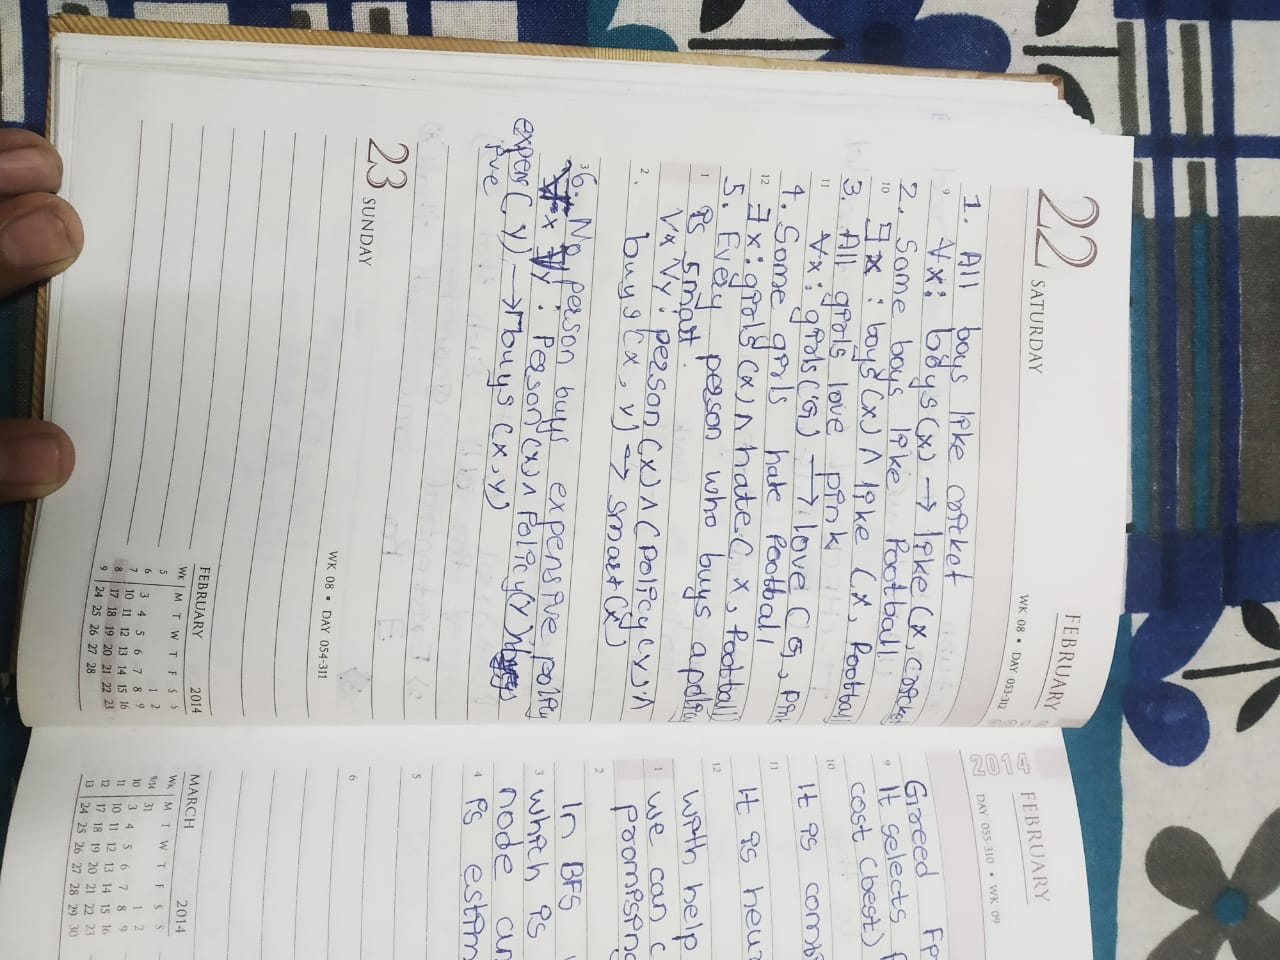 22 SATURDAY
FEBRUARY
WK 08 • DAY 053-312
1. All boys like cricket
9 ∀x: boys(x) → like (x, cricket
2. Some boys like football
10 ∃x : boys(x) ∧ like (x, football
3. All girls love pink
11 ∀x: girls(G) → love (G, pink
4. Some girls hate football
12 ∃x: girls (x) ∧ hate( x, football)
5. Every person who buys a policy
1 is smart.
∀x ∀y : person (x) ∧ (policy (y) ∧
2. buys (x, y) → smart(x)
3 6. No person buys expensive policy
∀x ∀y : Person (x) ∧ Policy(y) ∧
expens( y) → ¬buys (x, y)
ive
23 SUNDAY
WK 08 • DAY 054-311
FEBRUARY 2014
WK M T W T F S S
5 1 2
6 3 4 5 6 7 8 9
7 10 11 12 13 14 15 16
8 17 18 19 20 21 22 23
9 24 25 26 27 28
2014 FEBRUARY
DAY 055-310 • WK 09
Greed
9 It selects
cost (best)
10
It is
11
It is
12
with help
1 we can
2
In BFS
3 which is
node
4 is
5
6
MARCH 2014
WK M T W T F S S
9/14 31 1 2
10 3 4 5 6 7 8 9
11 10 11 12 13 14 15 16
12 17 18 19 20 21 22 23
13 24 25 26 27 28 29 30